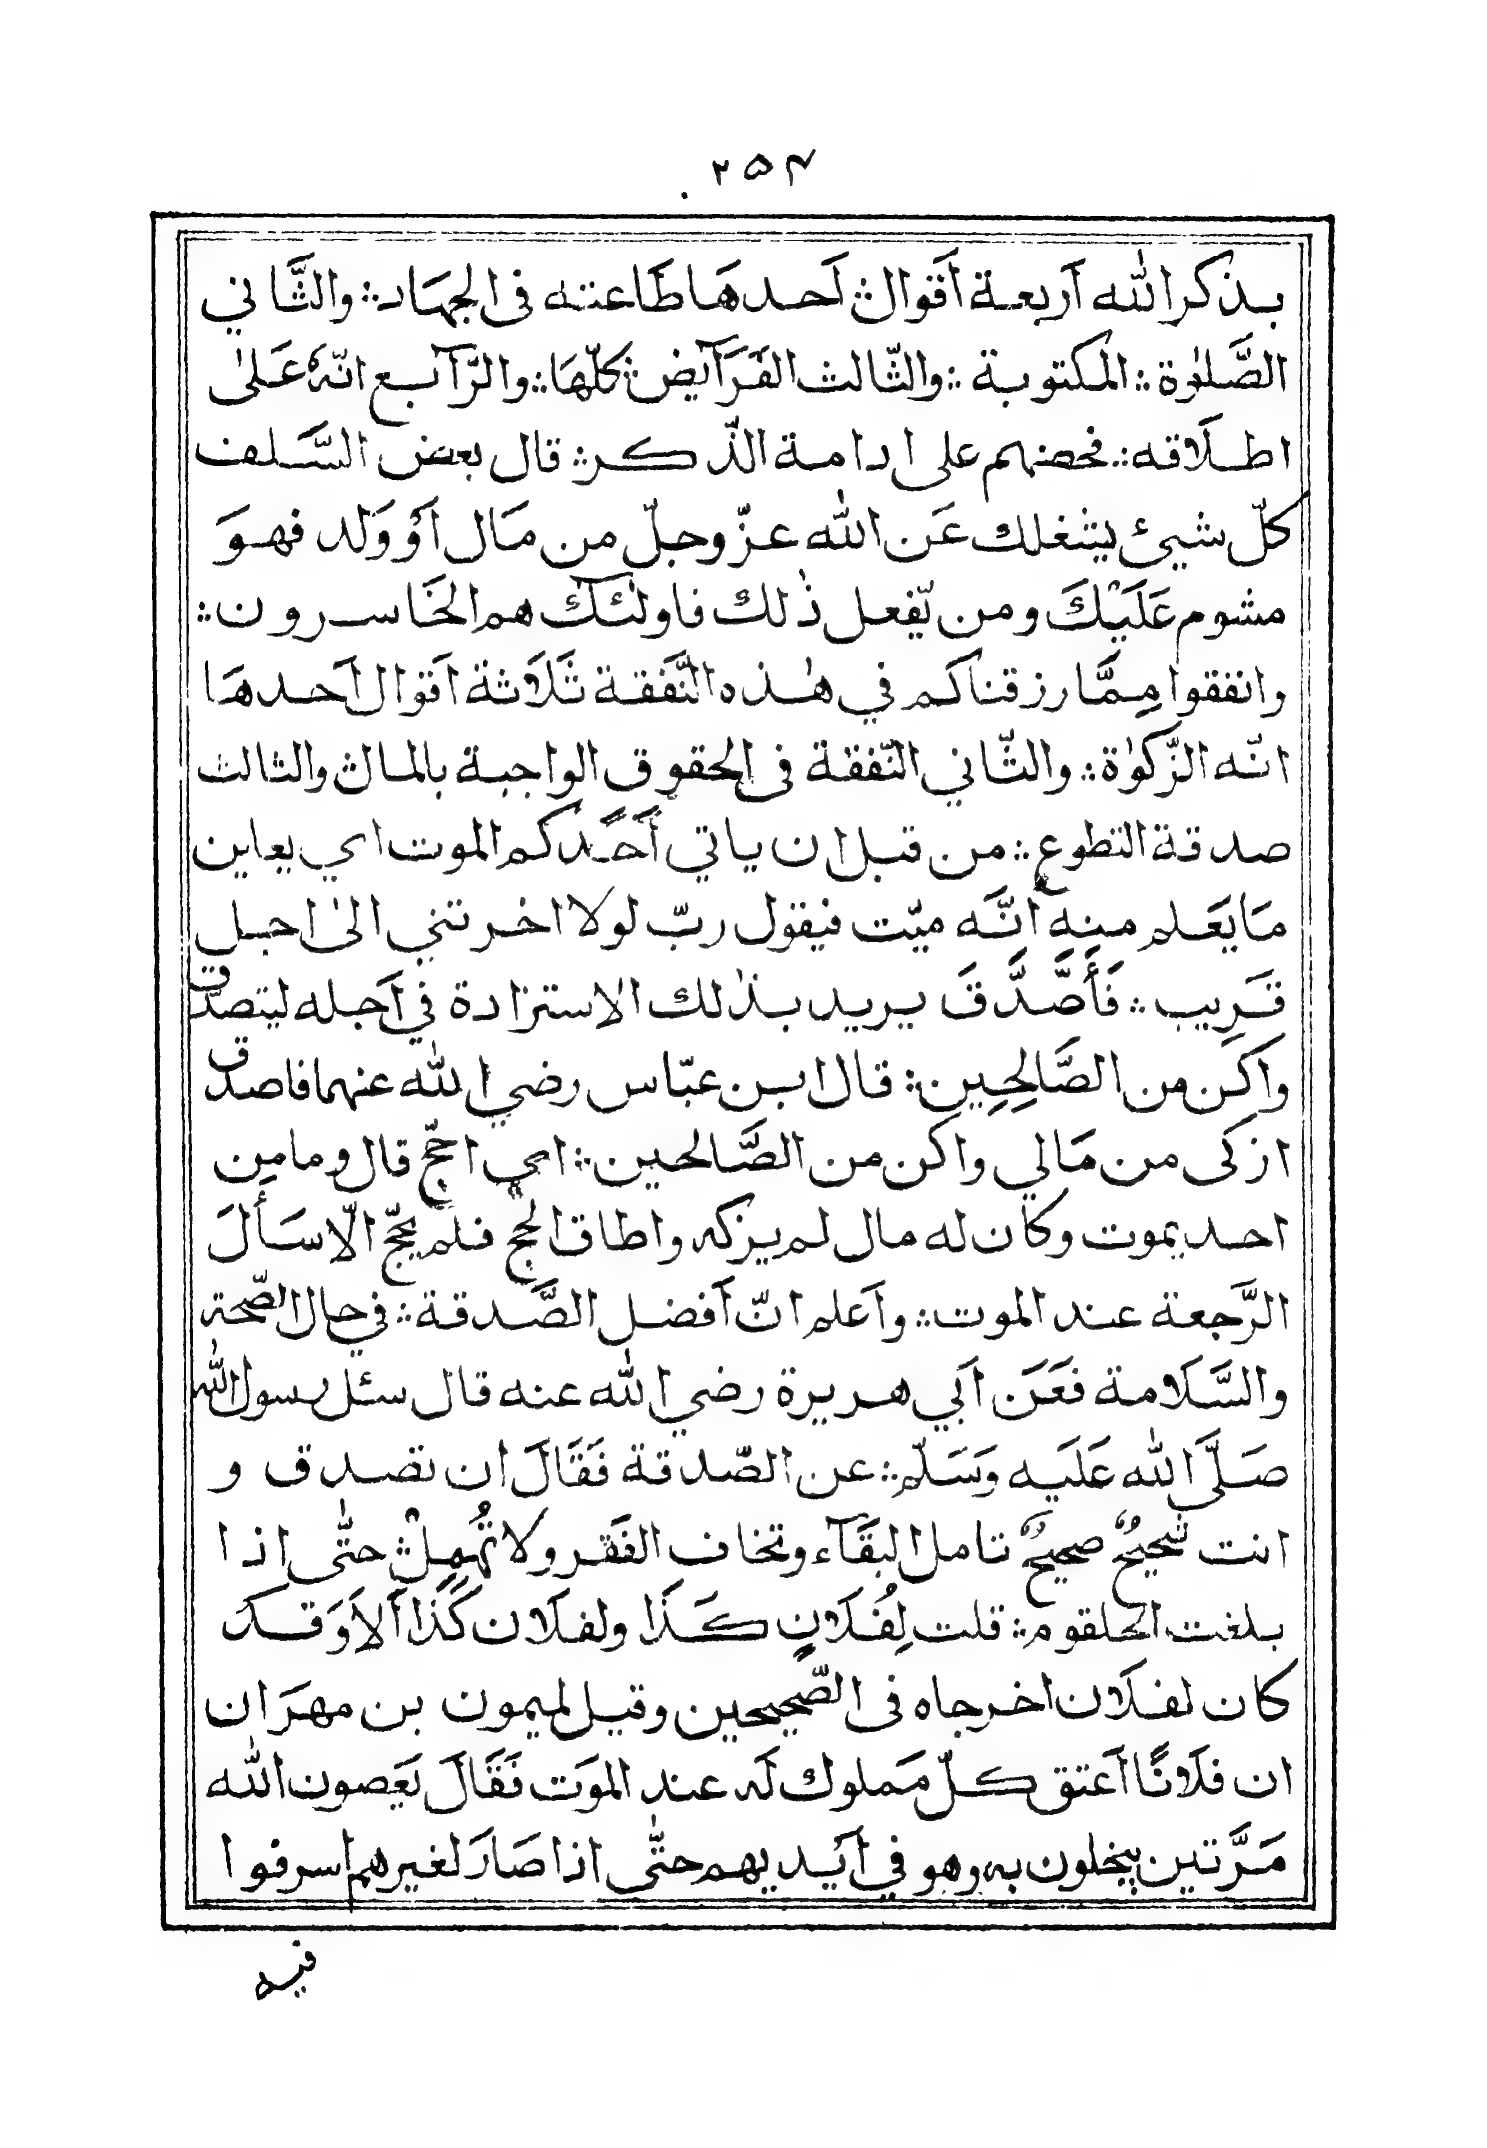 ۲۵۴
بذكر الله أربعة أقوال ؞ أحدها طاعته فى الجهاد ؞ والثّاني
الصَّلوٰة ؞ المكتوبة ؞ والثّالث الفَرَآئض ؞ كلّهَا ؞ والرَّآبع انّهٗ عَلىٰ
اطلَاقه ؞ فحضهم على ادامة الذّكر ؞ قال بعض السَّلف
كلّ شيئ يشغلك عَن الله عزّ وجلّ من مَال اَوْ وَلد فهوَ
مشوم عَلَيْكَ ومن يّفعل ذٰلك فاولٰئك هم الخَاسرون ؞
وانفقوا مِمَّا رزقناكم في هٰذه النَّفقة ثَلَاثة اَقوال اَحدهَا
انّه الزّكوٰة ؞ والثّاني النّفقة فى الحقوق الواجبة بالمال ؞ والثالث
صدقة التطوع ؞ من قبل ان ياتي أَحَدكم الموت اي يعاين
مَا يَعَلم منه انَّه ميّت فيقول ربّ لولا اخرتني الىٰ اجل
قَرِيب ؞ فَأَصَّدَّقَ يريد بذٰلك الاستزادة في اَجله ليتصدّق
واَكن من الصَّالِحِين ؞ قال ابن عبّاس رضي الله عنهما فاصدق
ازكى من مَالي واكن من الصَّالحين ؞ اي احجّ قال وما مِن
احد يموت وكان له مال لم يزكه واطاق الحجّ فلم يحجّ الّا سَأَلَ
الرَّجعة عند الموت ؞ واَعلم انّ اَفضل الصَّدقة ؞ في حال الصّحة
والسَّلَامة فعَن اَبي هريرة رضي الله عنه قال سئل رسول الله
صَلَّى الله عَلَيه وَسَلّم ؞ عن الصّدقة فَقَالَ ان تصدق و
انت شحيحٌ صحيحٌ تامل البقَآء وتخاف الفَقر ولا تُمهِلْ ؞ حتّٰى اذا
بلغت الحلقوم ؞ قلت لِفُلَانٍ كَذَا ولفلَان كَذَا أَلَا وَقَد
كان لفلَان اخرجاه فى الصّحيحين وقيل لميمون بن مهرَان
ان فلَانًا اَعتق كلّ مَملوك لَه عند الموَت فَقَالَ يَعصون الله
مَرَّتين يبخلون به وهو في اَيْديهم حتّٰى اذا صَارَ لغيرهم اسرفوا
فيه